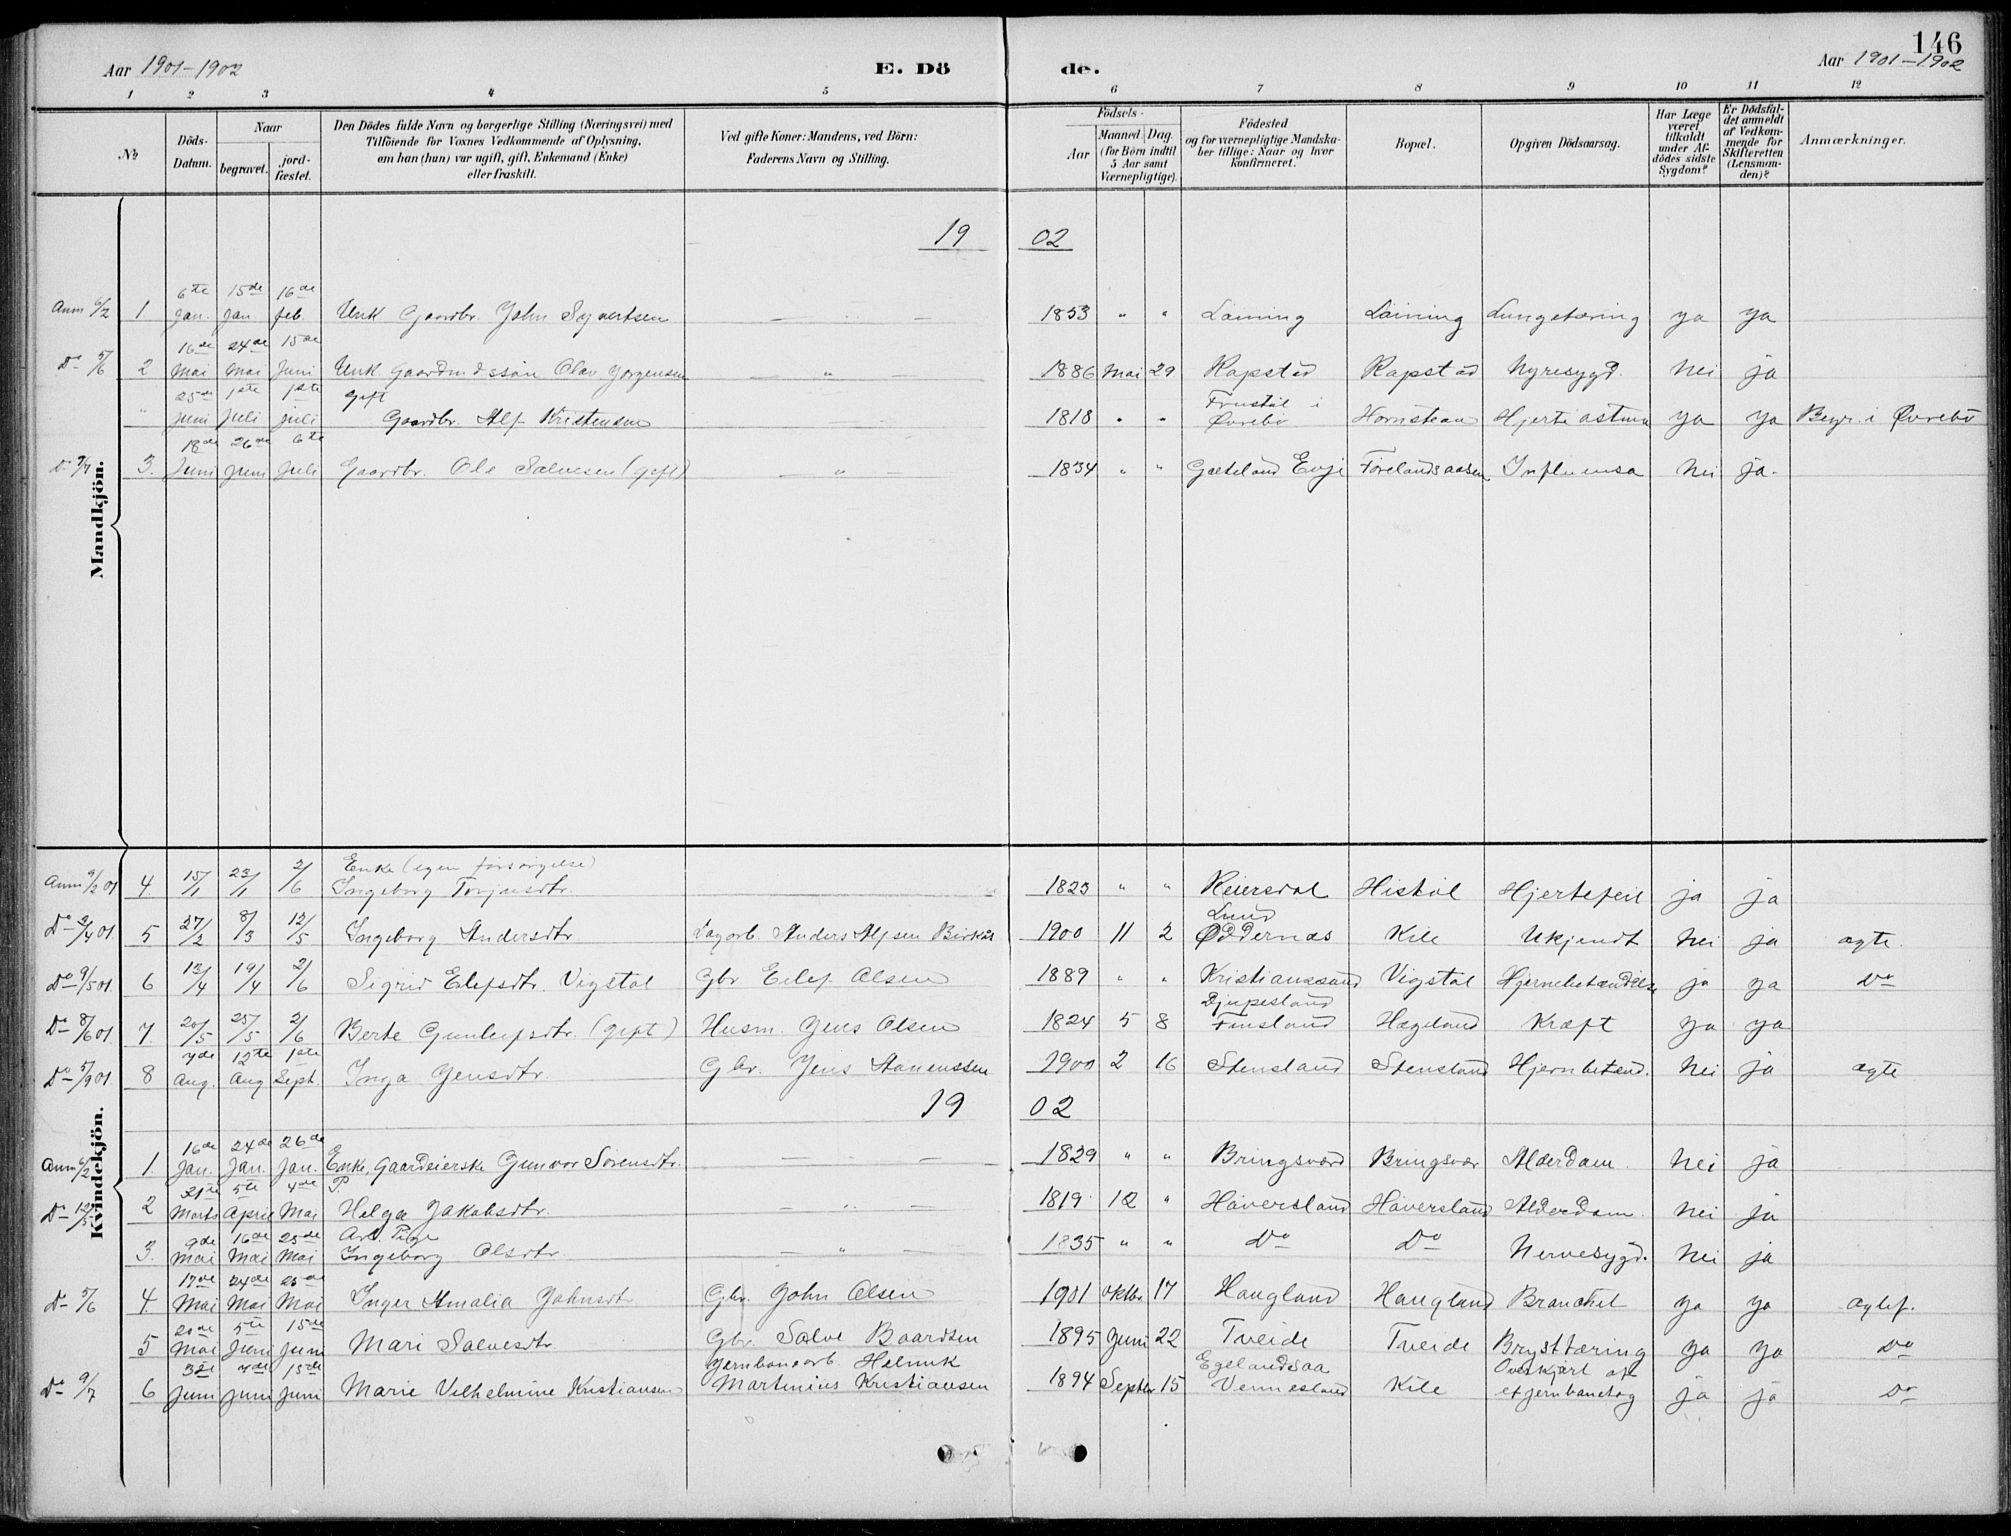 146
Aar 1901-1902 E. Dö de. Aar 1901-1902
1 2 3 4 5 6 7 8 9 10 11 12
No
Döds-Datum.
Naar
begravet.
jord-fæstet.
Den Dödes fulde Navn og borgerlige Stilling (Næringsvei) med
Tilföiende for Voxnes Vedkommende af Oplysning,
om han (hun) var ugift, gift, Enkemand (Enke)
eller fraskilt.
Ved gifte Koner: Mandens, ved Börn:
Faderens Navn og Stilling.
Födsels-
Aar
Maaned. Dag.
(for Börn indtil
5 Aar samt
Værnepligtige).
Födested
og for værnepligtige Mandska-
ber tillige: Naar og hvor
konfirmeret.
Bopæl.
Opgiven Dödsaarsag.
Har Læge
været
tilkaldt
under Af-
dödes sidste
Sygdom?
Er Dödsfal-
det anmeldt
af Vedkom-
mende for
Skifteretten
(Lensman-
den)?
Anmærkninger.
Mandkjön.
19 02
6te 15de 16de
Anm 6/2 1. Jan. Jan. feb. Unk Gaardbr. John Syvertsen 1853 " " Launing Launing Lungetæring ja ja
16de 24de 15de
Do 5/6 2 Mai Mai Juni Unk Gaardmdssön Olav Jörgensen " 1886 Mai 29 Rapstad Rapstad Nyresygd. nei ja
25de 1ste 1ste gift Frustöl i
" Juni Juli juli Gaardbr. Alf Kristensen 1818 " " Övrebö Hornstean Hjerte astma ja ja Begr. i Övrebö
18de 26de 6te
Do 9/7 3. Juni Juni Juli Gaardbr. Ole Salvesen (gift) " 1834 " " Gateland Evje Förelandsaasen Influensa nei ja.
Kvindekjön.
Enke (egen forsörgelse)
Anm 9/2 01 4. 15/1 23/1 2/6 Ingeborg Torjusdtr. 1823 " " Reiersdal Hisköl Hjertefeil ja ja
Lund
Do 9/4 01 5 27/2 8/3 12/5 Ingeborg Andersdtr Dagarb. Anders Alfsen Birkås 1900 11 2 Oddernæs Kile Ukjendt nei ja ægte.
Do 9/5 01 6 13/4 19/4 2/6 Sigrid Elefsdtr. Vigstöl Gbr Eilef Olsen 1889 " " Kristianssand Vigstöl Hjernebetændelse ja ja Do
Djupesland
Do 8/6 01 7. 20/5 25/5 2/6 Berte Gunleifsdtr. (gift) Husm. Jens Olsen 1824 5 8 Finsland Hægeland Kræft ja ja
7de 12te 1ste
Do 5/9 01 8 Aug. Aug Sept. Inga Jensdtr. Gbr. Jens Aanenssen 1900 2 16 Stensland Stensland Hjernbetænd. nei ja ægte
19 02
16de 24de 26de
Anm 6/2 1. Jan. Jan. Jan. Enke, Gaardeierske Gunvor Sörensdtr. 1829 " " Bringsvær Bringsvær Alderdom. nei ja
31te 5te 4de P.
Do 2 Marts April Mai Helga Jakobsdtr. 1819 12 " Haversland Haversland Alderdom nei ja
9de 16de 25de Arb. Pige
3. Mai Mai Mai Ingeborg Olsdtr " 1835 " " Do Do Nervesygd. nei ja
17de 24de 25de
Do 5/6 4 Mai Mai Mai Inger Amalia Johnsdtr Gbr. John Olsen 1901 Oktbr. 17 Haugland Haugland Bronchit ja ja ægtef.
20de 5te 15de
5 Mai Juni juni Mari Salvesdtr. Gbr. Salve Baardsen 1895 Juni 22 Tveide Tveide Brysttæring ja ja Do
3die 7de 15de Jernbanearb. Helmuk Egelandsaa Overkjört af
Do 9/7 6 Juni juni Juni Marie Vilhelmine Kristiansen Martinius Kristiansen 1894 Septbr 15 Vennesland Kile et jernbanetog ja ja Do